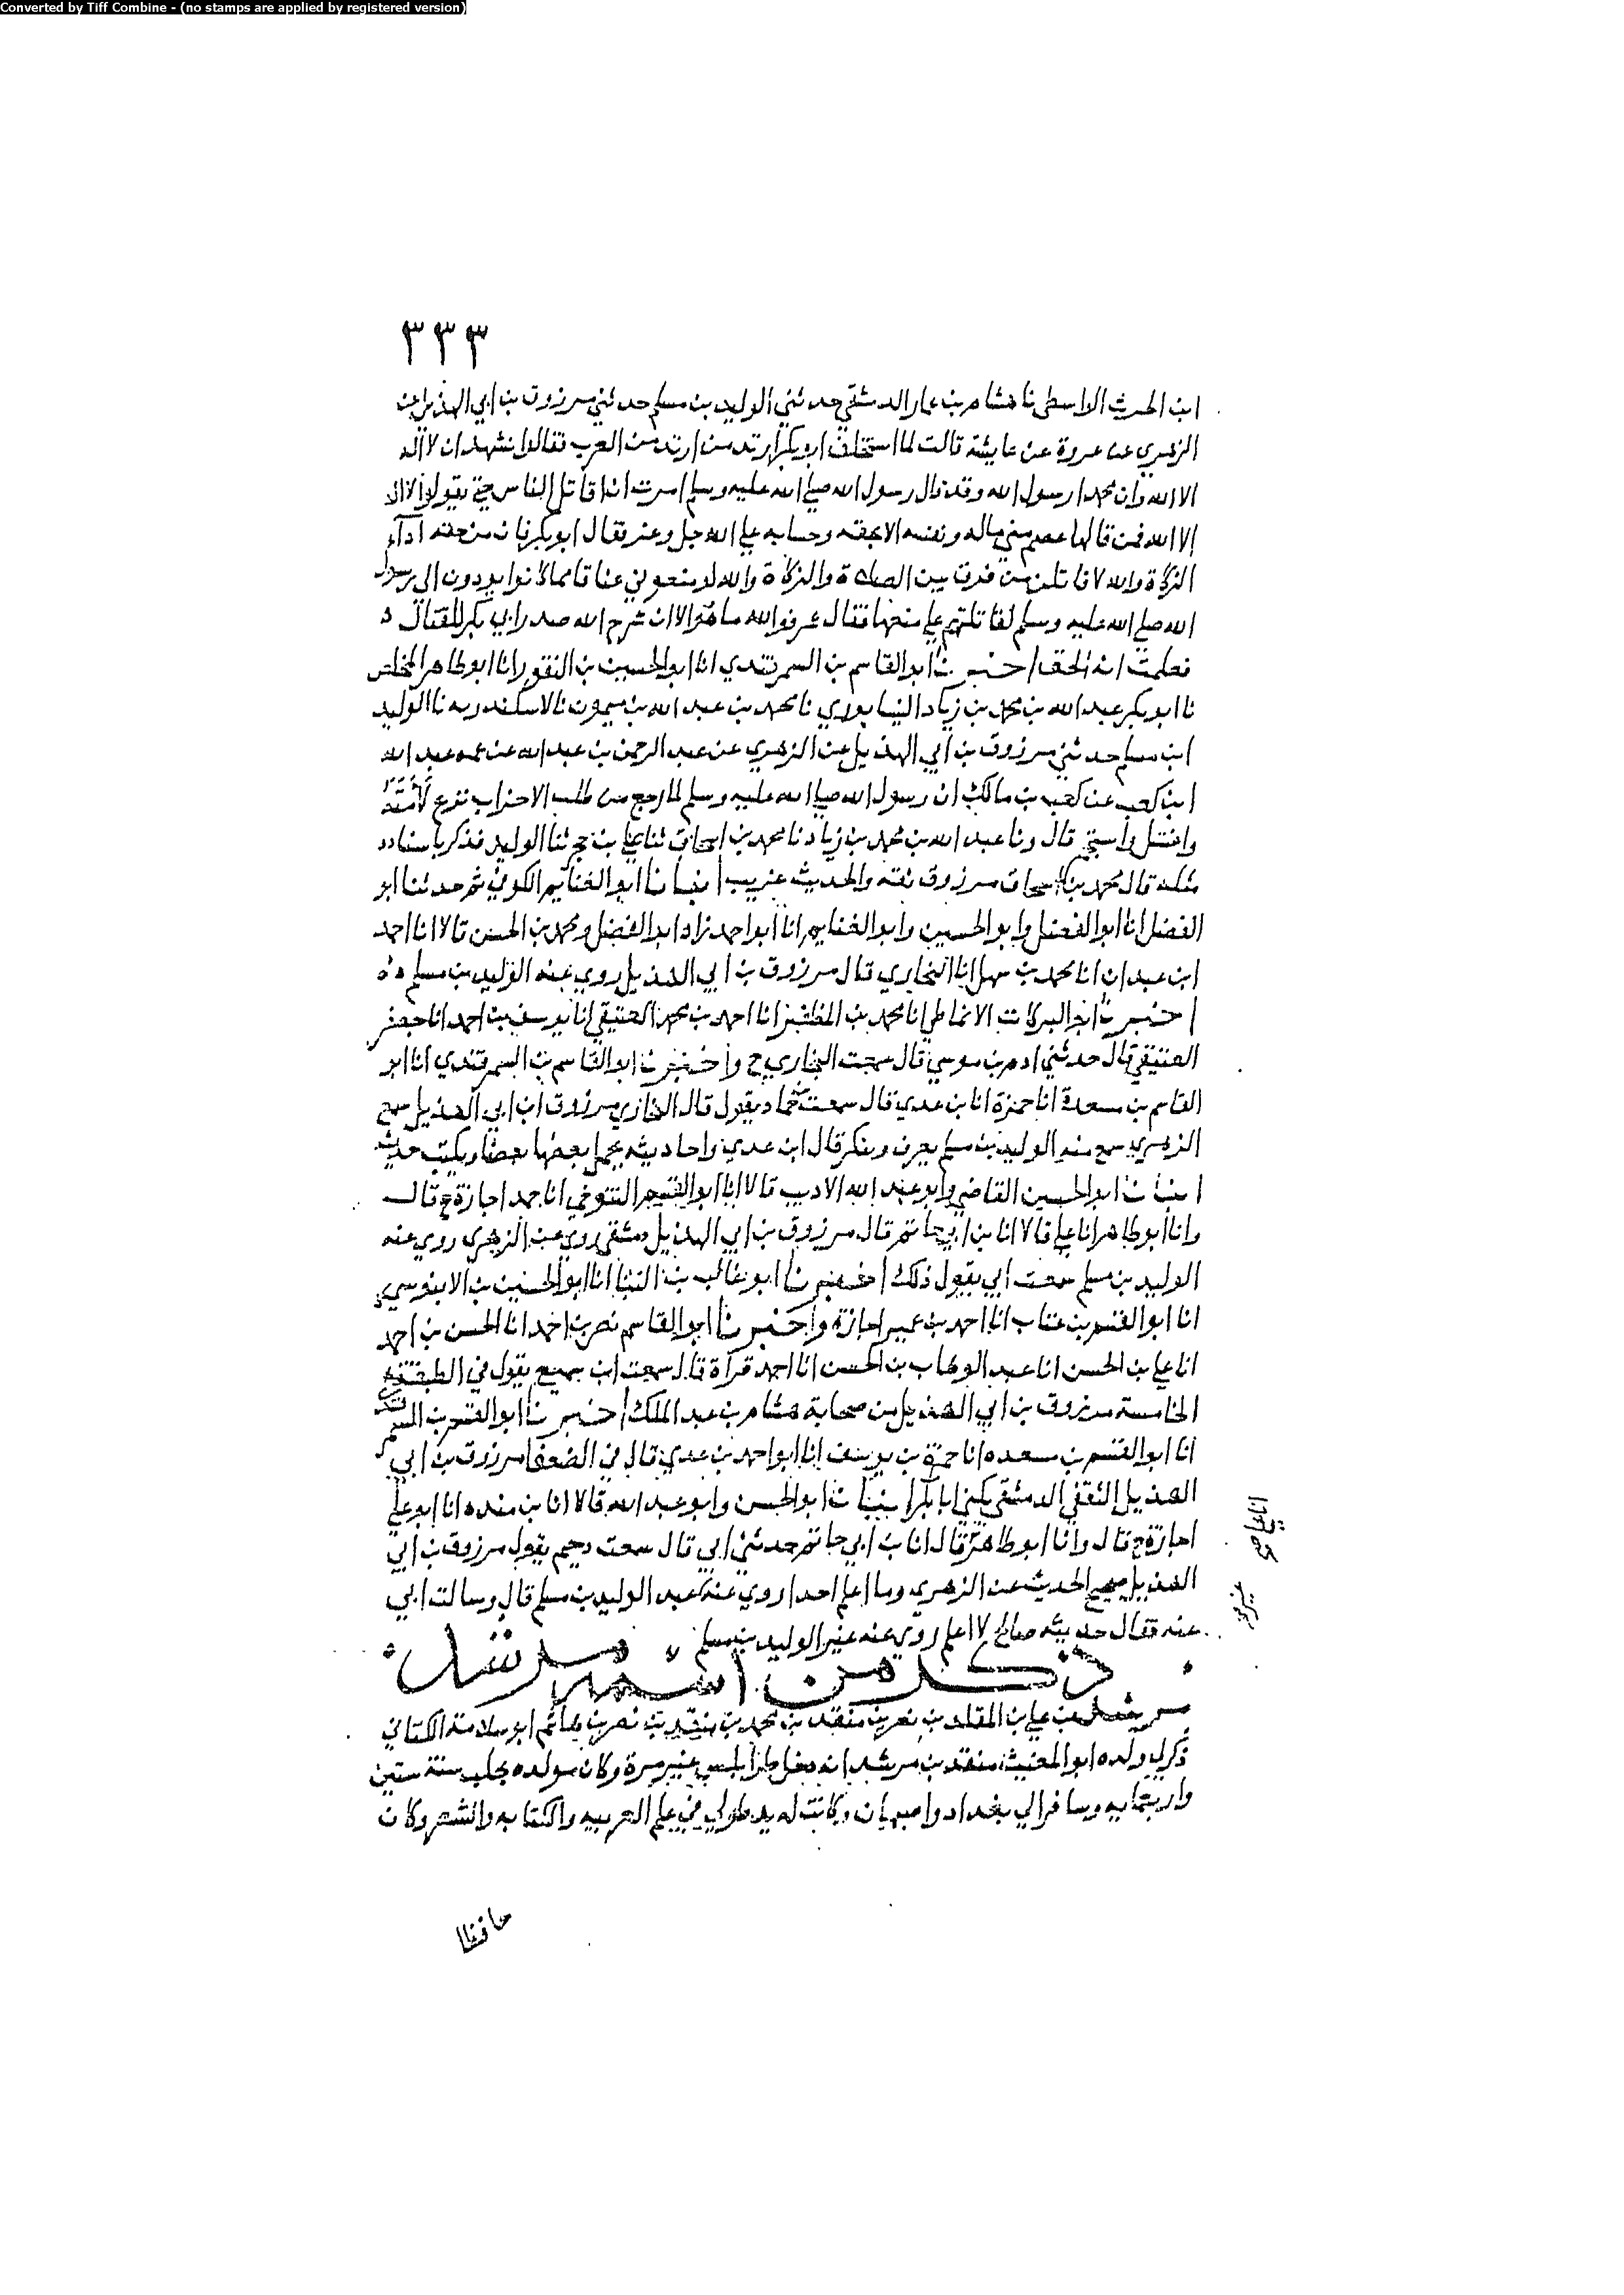 Converted by Tiff Combine - (no stamps are applied by registered version)
٣٣٣
ابن الحرث الواسطى نا هشام بن عمار الدمشقي حدثني الوليد بن مسلم حدثني مرزوق بن ابي الهذيل عن
الزهري عن عروة عن عايشة قالت لما استخلف ابو بكر ارتد من ارتد من العرب فقالوا نشهد ان لا اله
الا الله وان محمدا رسول الله وقد قال رسول الله صلي الله عليه وسلم امرت ان اقاتل الناس حتي يقولوا لا اله
الا الله فمن قالها عصم مني ماله ونفسه الا بحقه وحسابه علي الله جل وعز فقال ابو بكر فان من حقه اداء
الزكاة والله لاقاتلن من فرق بين الصلاة والزكاة والله لو منعوني عناقا مما كانوا يودون الى رسول
الله صلي الله عليه وسلم لقاتلتهم علي منعها فقال عمر فوالله ما هو الا ان شرح الله صدر ابي بكر للقتال
فعلمت انه الحق اخبرنا ابو القاسم بن السمرقندي انا ابو الحسين بن النقور انا ابو طاهر المخلص
نا ابو بكر عبد الله بن محمد بن زياد النيسابوري نا محمد بن عبد الله بن ميمون نا لاسكندريه نا الوليد
ابن مسلم حدثني مرزوق بن ابي الهذيل عن الزهري عن عبد الرحمن بن عبد الله عن عمه عبد الله
ابن كعب عن كعب بن مالك ان رسول الله صلي الله عليه وسلم لما رجع من طلب الاحزاب نزع لامته
واغتسل واستجمر قال ونا عبد الله بن محمد بن زياد نا محمد بن اسحاق ثنا علي بن حجر ثنا الوليد فذكر باسناده
مثله قال محمد بن اسحاق مرزوق ثقه والحديث غريب انبانا ابو الغنايم الكوفي ثم حدثنا ابو
الفضل انا ابو الفضل وابو الحسين وابو الغنايم انا ابو احمد زاد ابو الفضل ومحمد بن الحسن قالا انا احمد
ابن عبدان انا محمد بن سهل انا البخاري قال مرزوق بن ابي الهذيل روي عنه الوليد بن مسلم
اخبرنا ابو البركات الانماطي انا محمد بن المظفر انا احمد بن محمد العتيقي انا يوسف بن احمد انا جعفر
قال حدثني ادم بن موسي قال سمعت البخاري ح واخبرنا ابو القاسم بن السمرقندي انا ابو
القاسم بن مسعدة انا حمزة انا بن عدي قال سمعت حماد يقول قال البخاري مرزوق ابن ابي الهذيل سمع
الزهري سمع منه الوليد بن مسلم يعرف وينكر قال ابن عدي واحاديثه يحمل بعضها بعضا ويكتب حديثه
انبانا ابو الحسين القاضي وابو عبد الله الاديب قالا انا ابو القسم انا حمد اجازة ح قال
وانا ابو طاهر انا علي قالا انا بن ابي حاتم قال مرزوق بن ابي الهذيل دمشقي روي عن الزهري روي عنه
الوليد بن مسلم سمعت ابي يقول ذلك اخبرنا ابو غالب بن البنا انا ابو الحسين بن الابنوسي
انا ابو القسم بن عتاب انا احمد بن عمير اجازة واخبرنا ابو القاسم نصر بن احمد انا الحسن بن احمد
انا علي بن الحسن انا عبد الوهاب بن الحسن انا احمد قراة قال سمعت ابن سميع يقول في الطبقة
الخامسة مرزوق بن ابي الهذيل من صحابة هشام بن عبد الملك اخبرنا ابو القسم بن السمرقندي
انا ابو القسم بن مسعده انا حمزة بن يوسف انا ابو احمد بن عدي قال في الضعفا مرزوق بن ابي
الهذيل الثقفي الدمشقي يكنى ابا بكر انبانا ابو الحسن وابو عبد الله قالا انا بن منده انا ابو علي
اجازة ح قال وانا ابو طاهر قال انا بن ابي حاتم حدثني ابي قال سمعت دحيم يقول مرزوق بن ابي
الهذيل صحيح الحديث عن الزهري وما اعلم احدا روي عنه عبد الوليد بن مسلم قال وسالت ابي
عنه فقال حديثه صالح لا اعلم روي عنه غير الوليد بن مسلم
ذكر من اسمه مرشد
مرشد بن علي بن المقلد بن نصر بن منقذ بن محمد بن منقذ بن نصر بن هاشم ابو سلامة الكناني
ذكر لي ولده ابو المغيث منقذ بن مرشد انه دخل طرابلس غير مرة وكان مولده بحلب سنة ستين
واربعمايه وسافر الي بغداد واصبهان وكانت له يد طولي في علم العربيه والكتابه والشعر وكان
حافظا